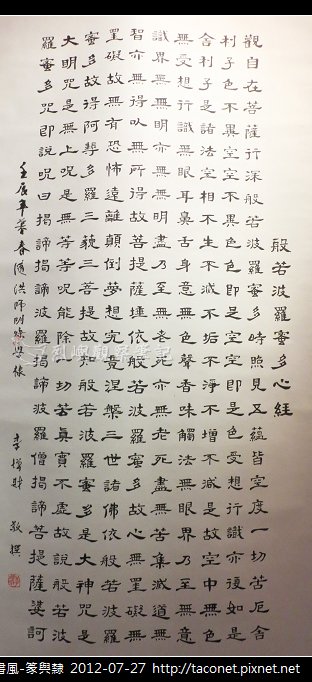 般若波羅蜜多心經
觀自在菩薩行深般若波羅蜜多時照見五蘊皆空度一切苦厄舍
利子色不異空空不異色色即是空空即是色受想行識亦復如是
舍利子是諸法空相不生不滅不垢不淨不增不減是故空中無色
無受想行識無眼耳鼻舌身意無色聲香味觸法無眼界乃至無意
識界無無明亦無無明盡乃至無老死亦無老死盡無苦集滅道無
智亦無得以無所得故菩提薩埵依般若波羅蜜多故心無罣礙無
罣礙故無有恐怖遠離顛倒夢想究竟涅槃三世諸佛依般若波羅
蜜多故得阿耨多羅三藐三菩提故知般若波羅蜜多是大神咒是
大明咒是無上咒是無等等咒能除一切苦真實不虛故說般若波
羅蜜多咒即說咒曰揭諦揭諦波羅揭諦波羅僧揭諦菩提薩婆訶
壬辰年暮春隨洪師 李 敬
書風-篆與隸 2012-07-27 http://taconet.pixnet.net